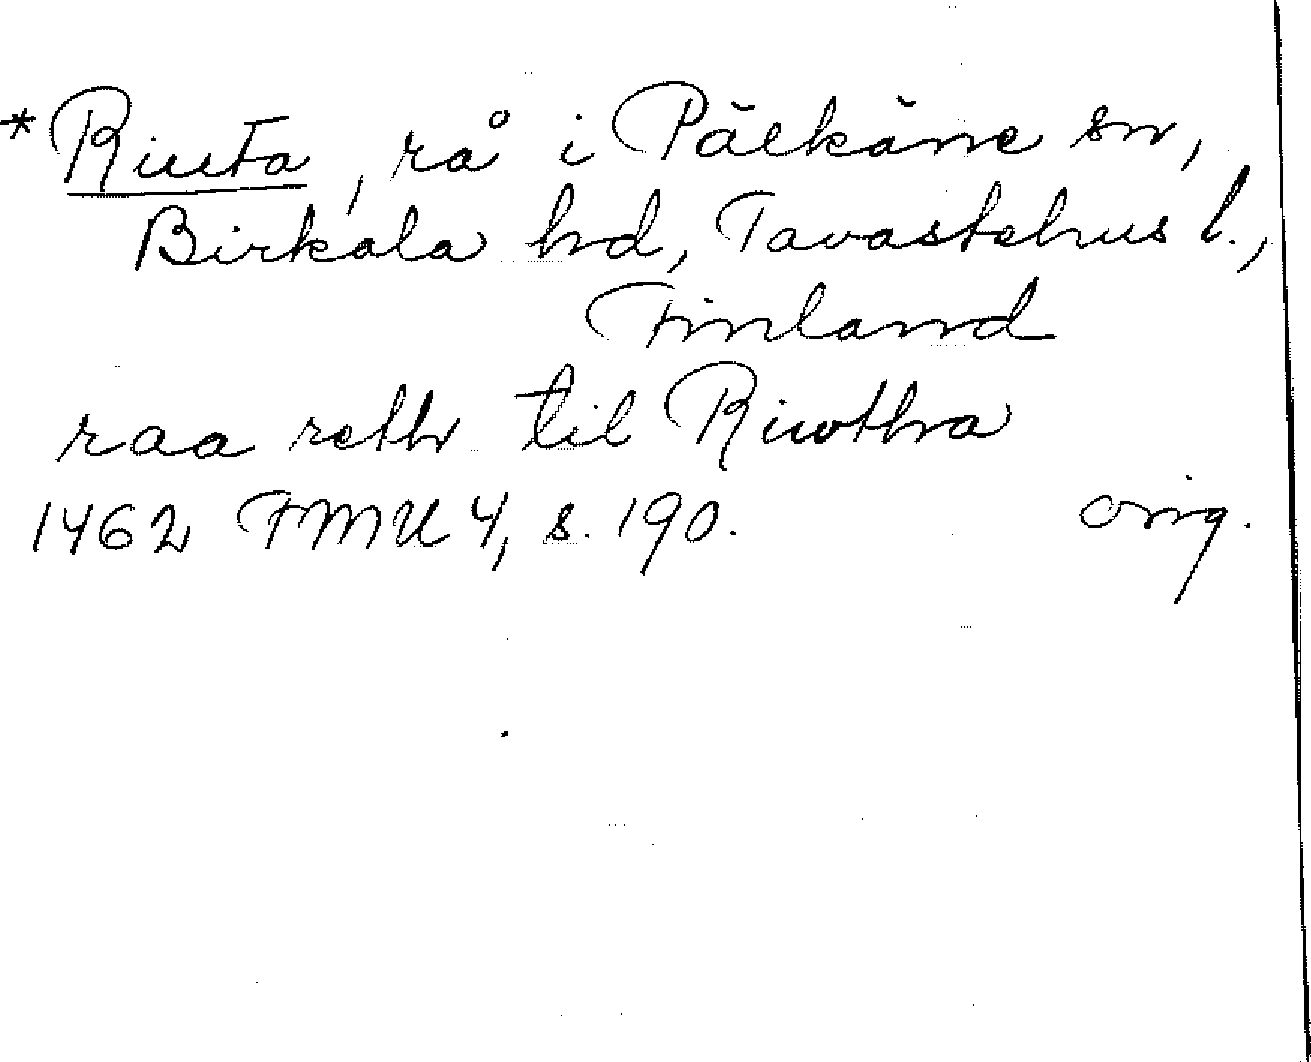 *Riuta, rå i Pälkäne sn,
Birkala hd, Tavastehus l.,
Finland
raa rethr til Riwtha
1462 FMU 4, s. 190. orig.